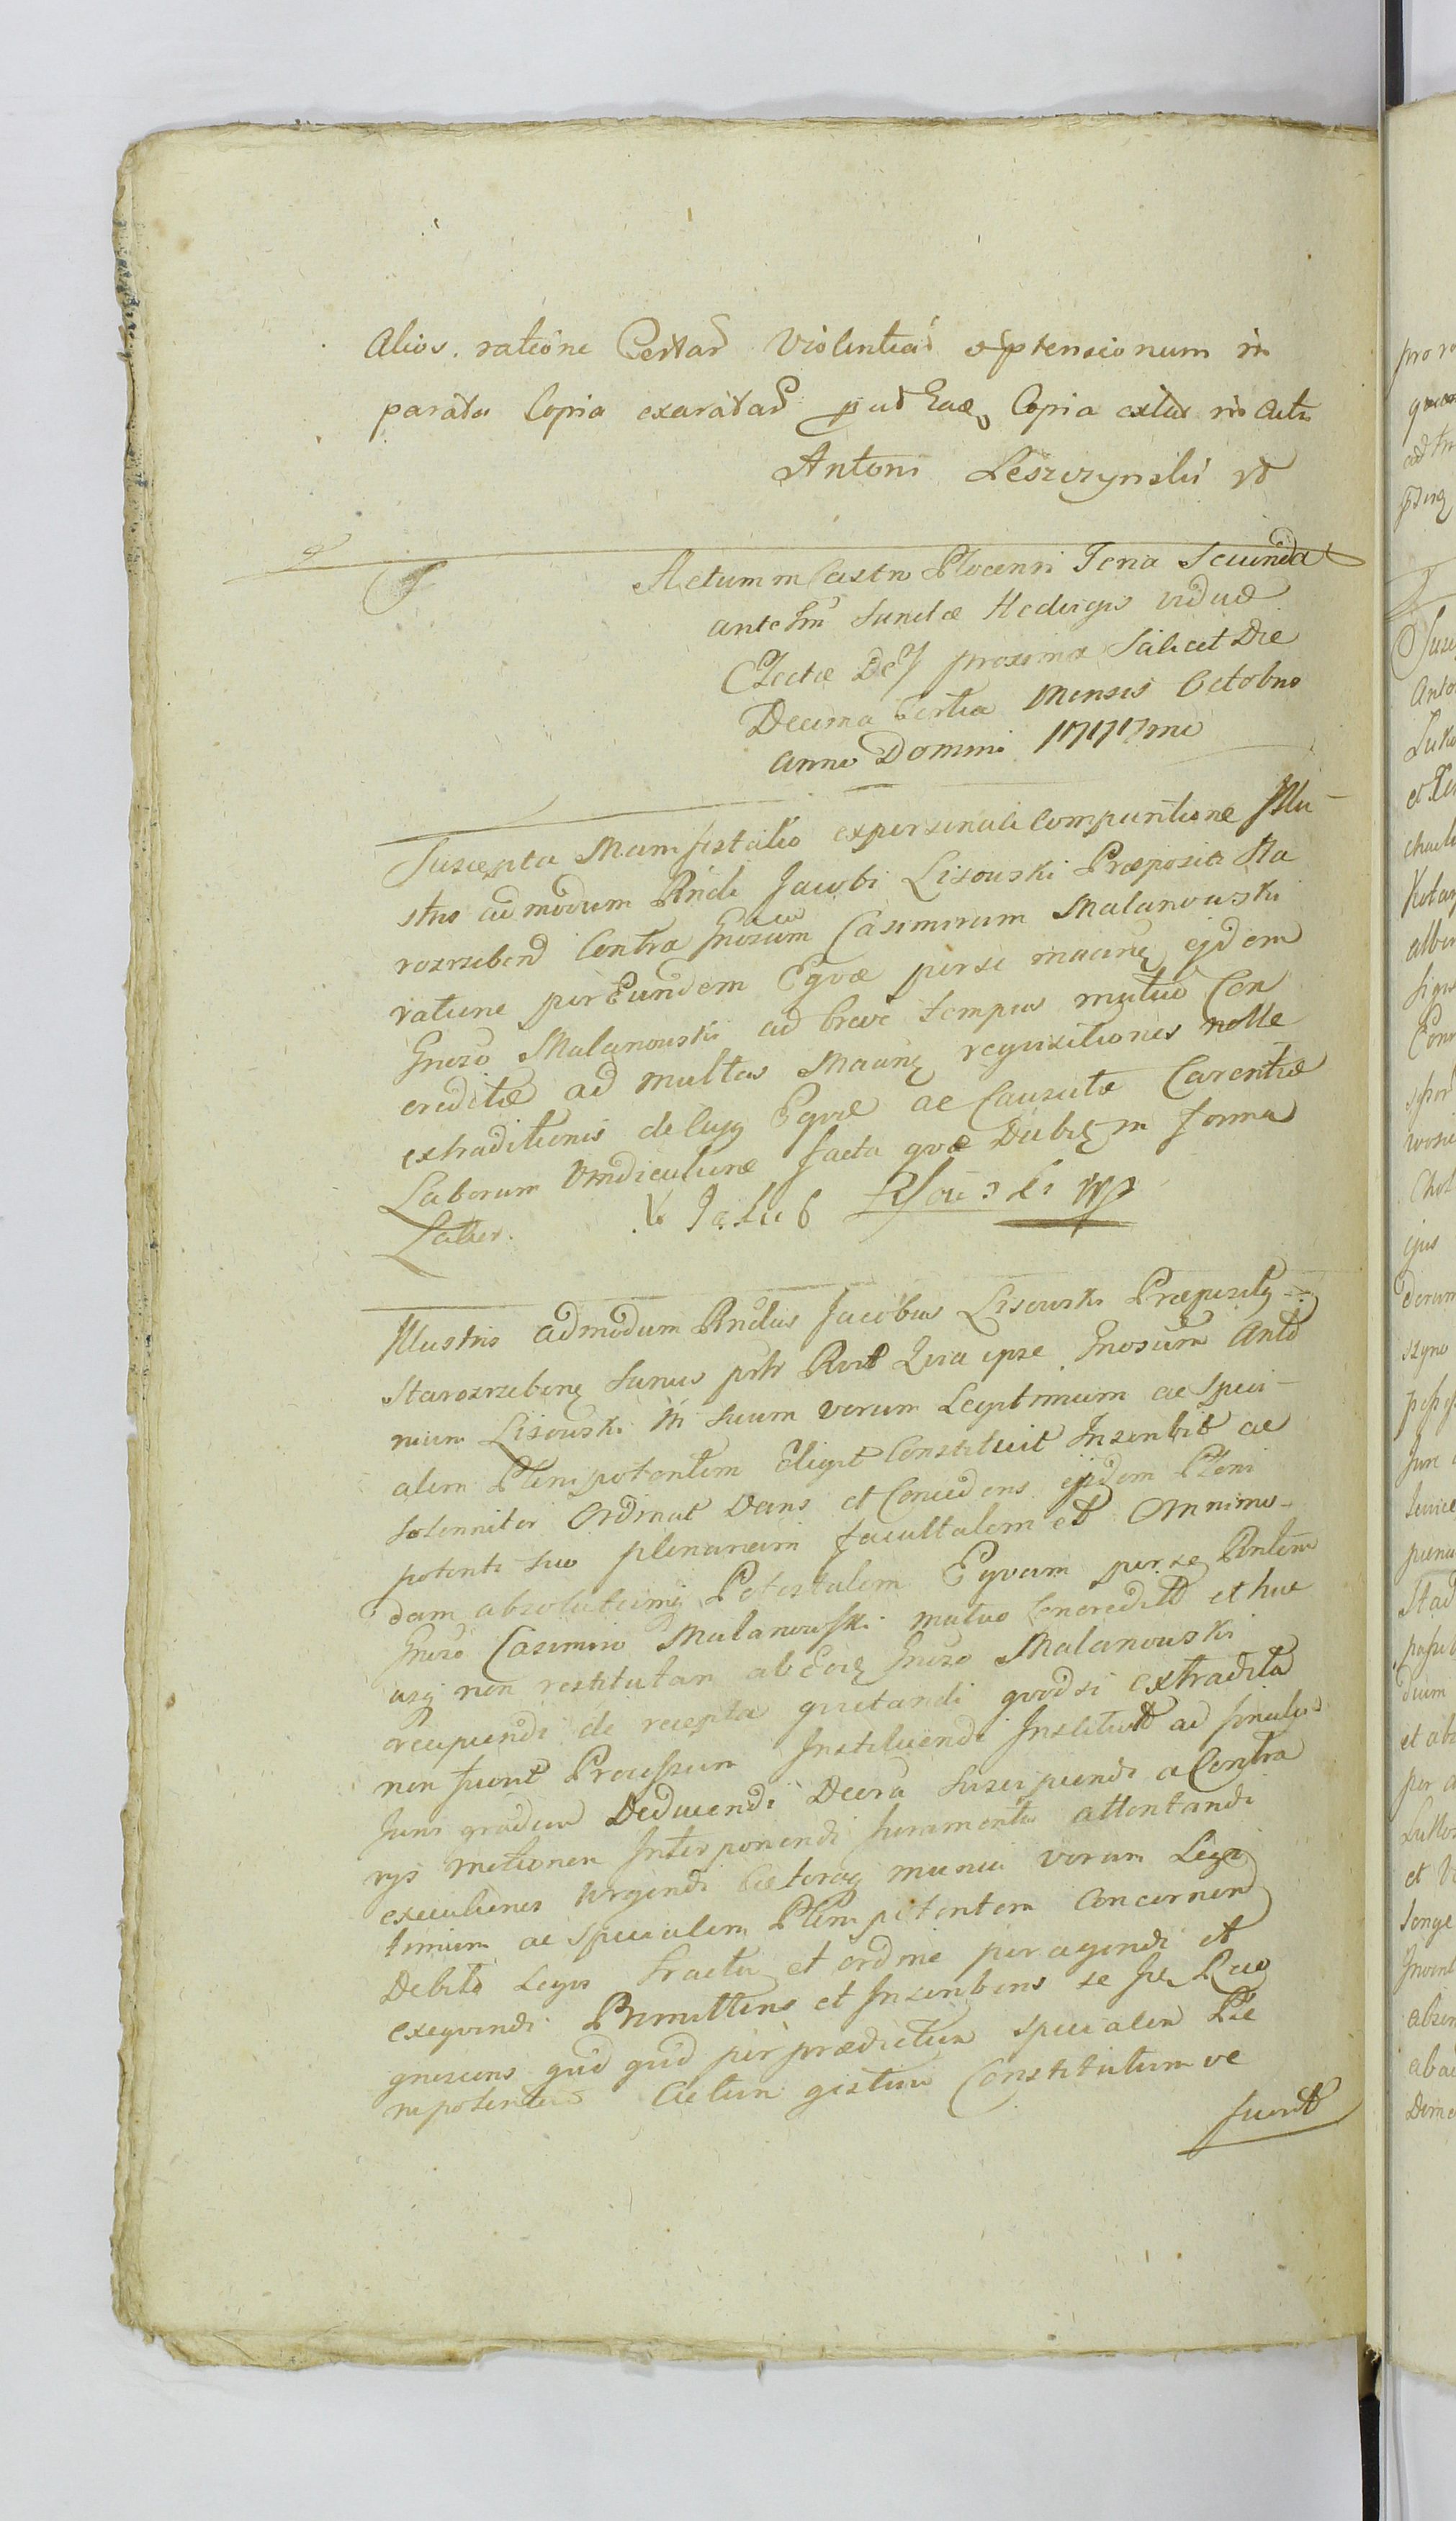 Alios. ratione Certar Violentiar optensionum in
parata Copia exaratar put Eae Copia extat in Actis
Antoni Leszczynski
Actum in Castro Plocensi Feria Secunda
ante fm Sanctæ Hedvigis viduæ
Electæ Dei proxima Scilicet Die
Decima tertia Mensis Octobris
Anno Domini 1777mo
Suscepta Manifestatio ex personali Comparitione Illu-
stris admodum Rndi Jacobi Lisowski Præpositi Sta
rozrebend Contra Gnosum Casimirum Malanowski
ratione per Eundem Eqvæ per se maane ejdem
Gneroso Malanowski ad breve tempus mutuo Con
creditæ ad multas Maane reqvisitiones nolle
extraditionis de cujq Eqvæ ac Causatæ Carentiæ
Laborum Vindicatione facta qvæ Dabit in forma
Latior. X Jakub Lisowski mp
Illustris admodum Rndus Jacobus Lisowski Præposity
Starozrebiny Sanus Quia ipse Gnosum Anto
nium Lisowski in Suum verum Legitimum ac Speci-
alem Plenipotentem Eligit Constituit Inscribit ac
Solenniter Ordinat Dans et Concedens ejdem Pleni
potenti suo plenariam facultatem et Omnimo-
dam absolutamq Potestatem Eqvam per se
Gneroso Casimiro Malanowski mutuo Concredit et huc
usq non restitutam ab Eoq Gneroso Malanowski
recipiendi de recepta quietandi qvodsi extradita
non fuerit Processum Instituendi Institut ad
Juris gradum Deducendi Decra Suscipiendi a Contra
rys motionem Interponendi Juramenta attentandi
executiones Urgendi Cæteraq munia verum Legi
timum ac specialem Plenipotentem Concernen
Debito Legis tractu et ordine peragendi et
exeqvendi. Promittens et Inscribens se
gnoscens qvid qvid per prædictum specialem Ple
nipotentem Actum gestum Constitutumve
fuerit